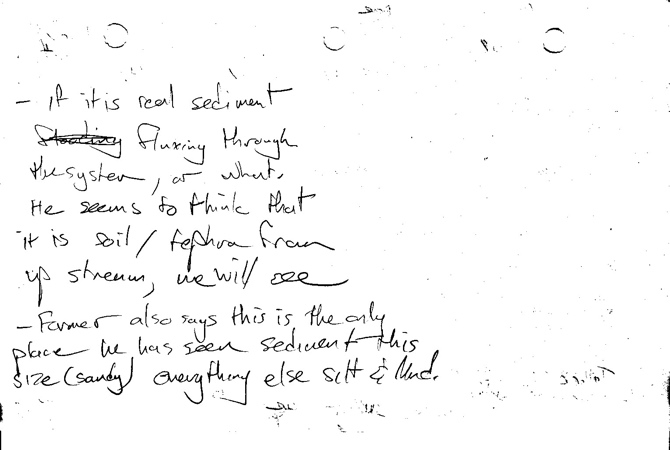 - if it is real sediment
fluxing through
the system, or what.
He seems to think that
it is soil / tephra from
up stream, we will see
- Farmer also says this is the only
place he has seen sediment this
size (sandy) everything else silt & Mud.